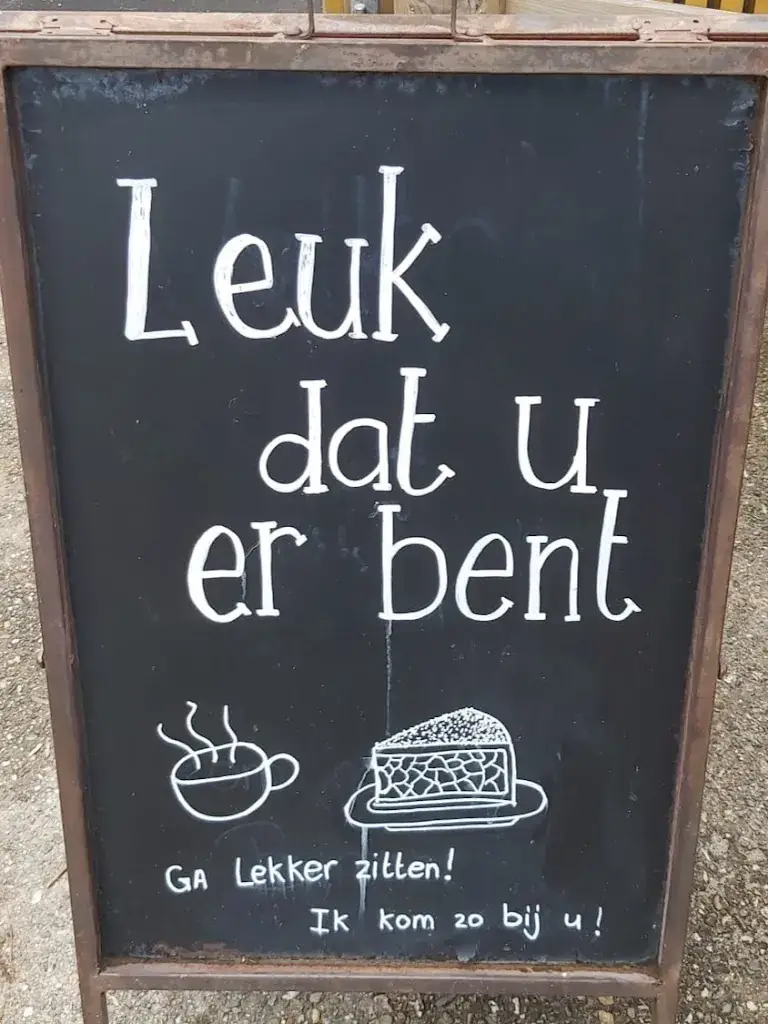 Leuk
dat u
er bent
GA Lekker zitten!
Ik kom zo bij u!